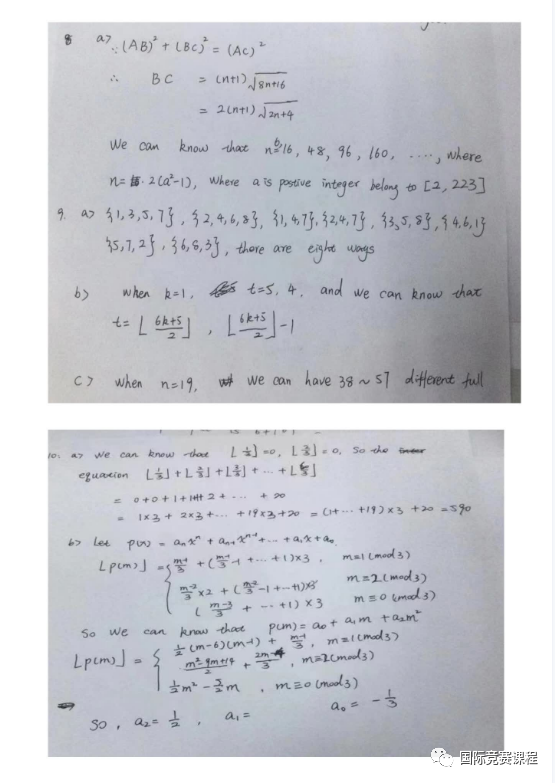 8 a> ∵ (AB)² + (BC)² = (AC)²
∴ BC = (n+1)√(8n+16)
= 2(n+1)√(2n+4)
We can know that n= 6, 16, 48, 96, 160, ····, where
n= 2(a²-1), where a is postive integer belong to [2, 223]
9. a> {1,3,5,7}, {2,4,6,8}, {1,4,7}, {2,4,7}, {3,5,8}, {4,6,1}
{5,7,2}, {6,8,3}, there are eight ways
b> when k=1, t=5, 4, and we can know that
t= ⌊(6k+5)/2⌋, ⌊(6k+5)/2⌋-1
c> when n=19, we can have 38 ~ 57 different full
10. a> we can know that ⌊1/3⌋=0, ⌊2/3⌋=0, so the
equation ⌊1/3⌋+⌊2/3⌋+⌊3/3⌋+ ··· +⌊ /3⌋
= 0+0+1+1+1+2+ ··· + 20
= 1×3 + 2×3 + ··· + 19×3 + 20 = (1+ ··· +19)×3 +20 = 590
b> Let p(x) = aₙxⁿ + aₙ₋₁xⁿ⁻¹ + ··· + a₁x + a₀
⌊p(m)⌋ = { (m-1)/3 + ((m-1)/3 -1 + ··· +1)×3, m≡1(mod3)
(m-2)/3 ×2 + ((m-2)/3 -1 + ··· +1)×3 m≡2(mod3)
((m-3)/3 + ··· +1) ×3 m≡0(mod3)
So we can know that p(m) = a₀ + a₁m + a₂m²
⌊p(m)⌋ = { ½(m-6)(m-1) + (m-1)/3, m≡1(mod3)
(m²-9m+14)/2 + , m≡2(mod3)
½m² - m, m≡0(mod3)
So, a₂= ½, a₁= a₀= -⅓
国际竞赛课程